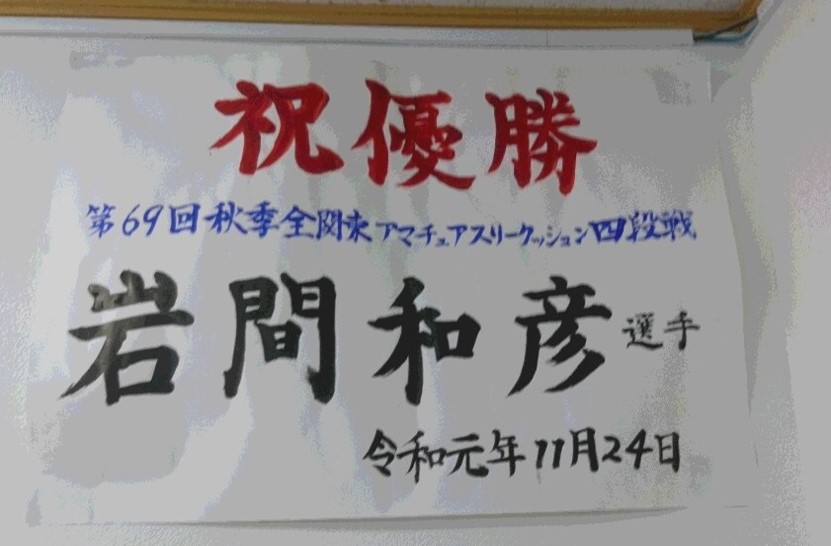 祝優勝
第69回秋季全関東アマチュアスリークッション四段戦
岩間和彦選手
令和元年11月24日